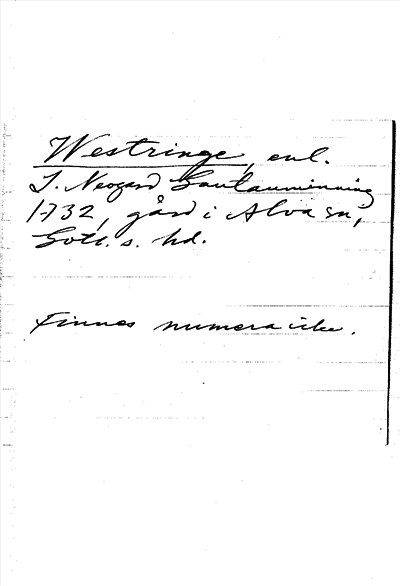 Westringe, enl.
J. Neogard Gautauminning
1732, gård i Alva sn,
Gotl. s. hd.
Finnes numera icke.